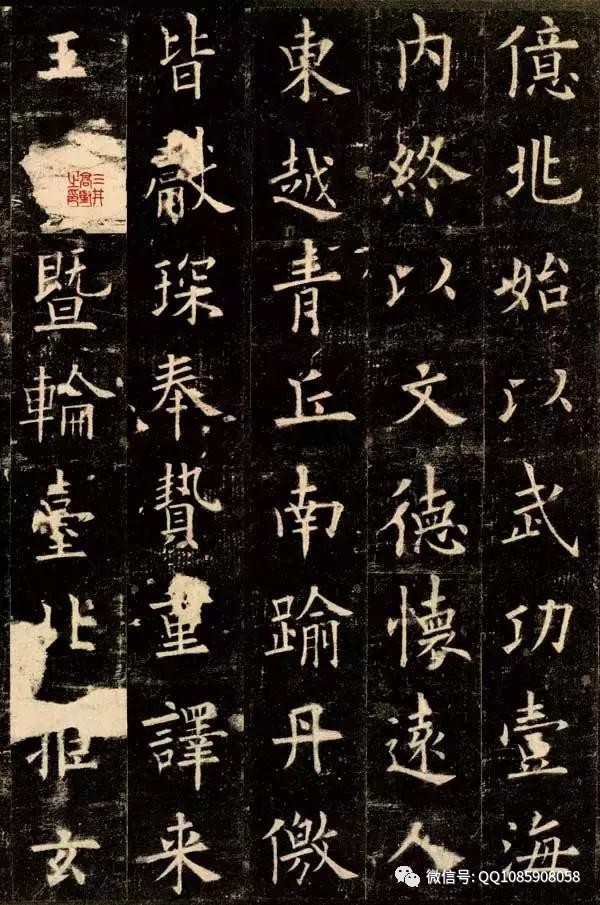 億兆始以武功壹海
内終以文德懷遠人
東越青丘南踰丹儌
皆獻琛奉贄重譯来
王 暨輪臺北拒玄
微信号: QQ1085908058